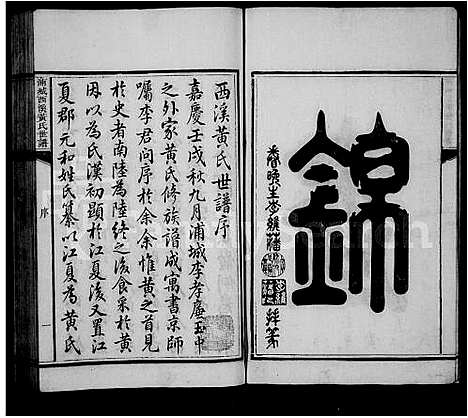 錦
春暉生李
拜篆
西溪黃氏世譜序
嘉慶壬戌秋九月浦城李孝廉玉中
之外家黃氏修族譜成寓書京師
囑李君問序於余余惟黃之首見
於史者南陸為陸終之後食采於黃
因以為氏漢初顯於江夏後又置江
夏郡元和姓氏纂以江夏為黃氏
浦城西溪黃氏世譜
序
一